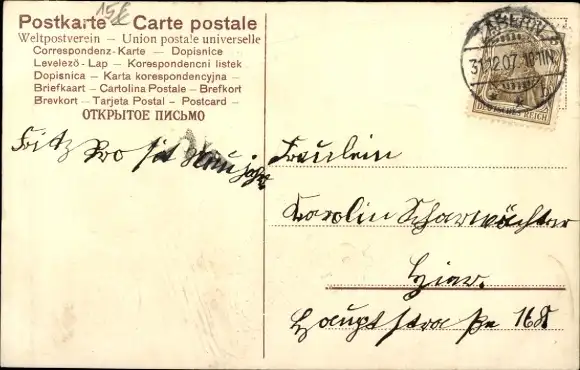 Postkarte – Carte postale
15€
Weltpostverein – Union postale universelle
Correspondenz-Karte – Dopisnice
Levelező-Lap – Korespondencni listek
Dopisnica – Karta korespondencyjna –
Briefkaart – Cartolina Postale – Brefkort
Brevkort – Tarjeta Postal – Postcard –
ОТКРЫТОЕ ПИСЬМО
ZABERN
31.12.07.
DEUTSCHES REICH
Fritz
Fräulein
Karolin Scharwächter
Hier.
Hauptstraße 168